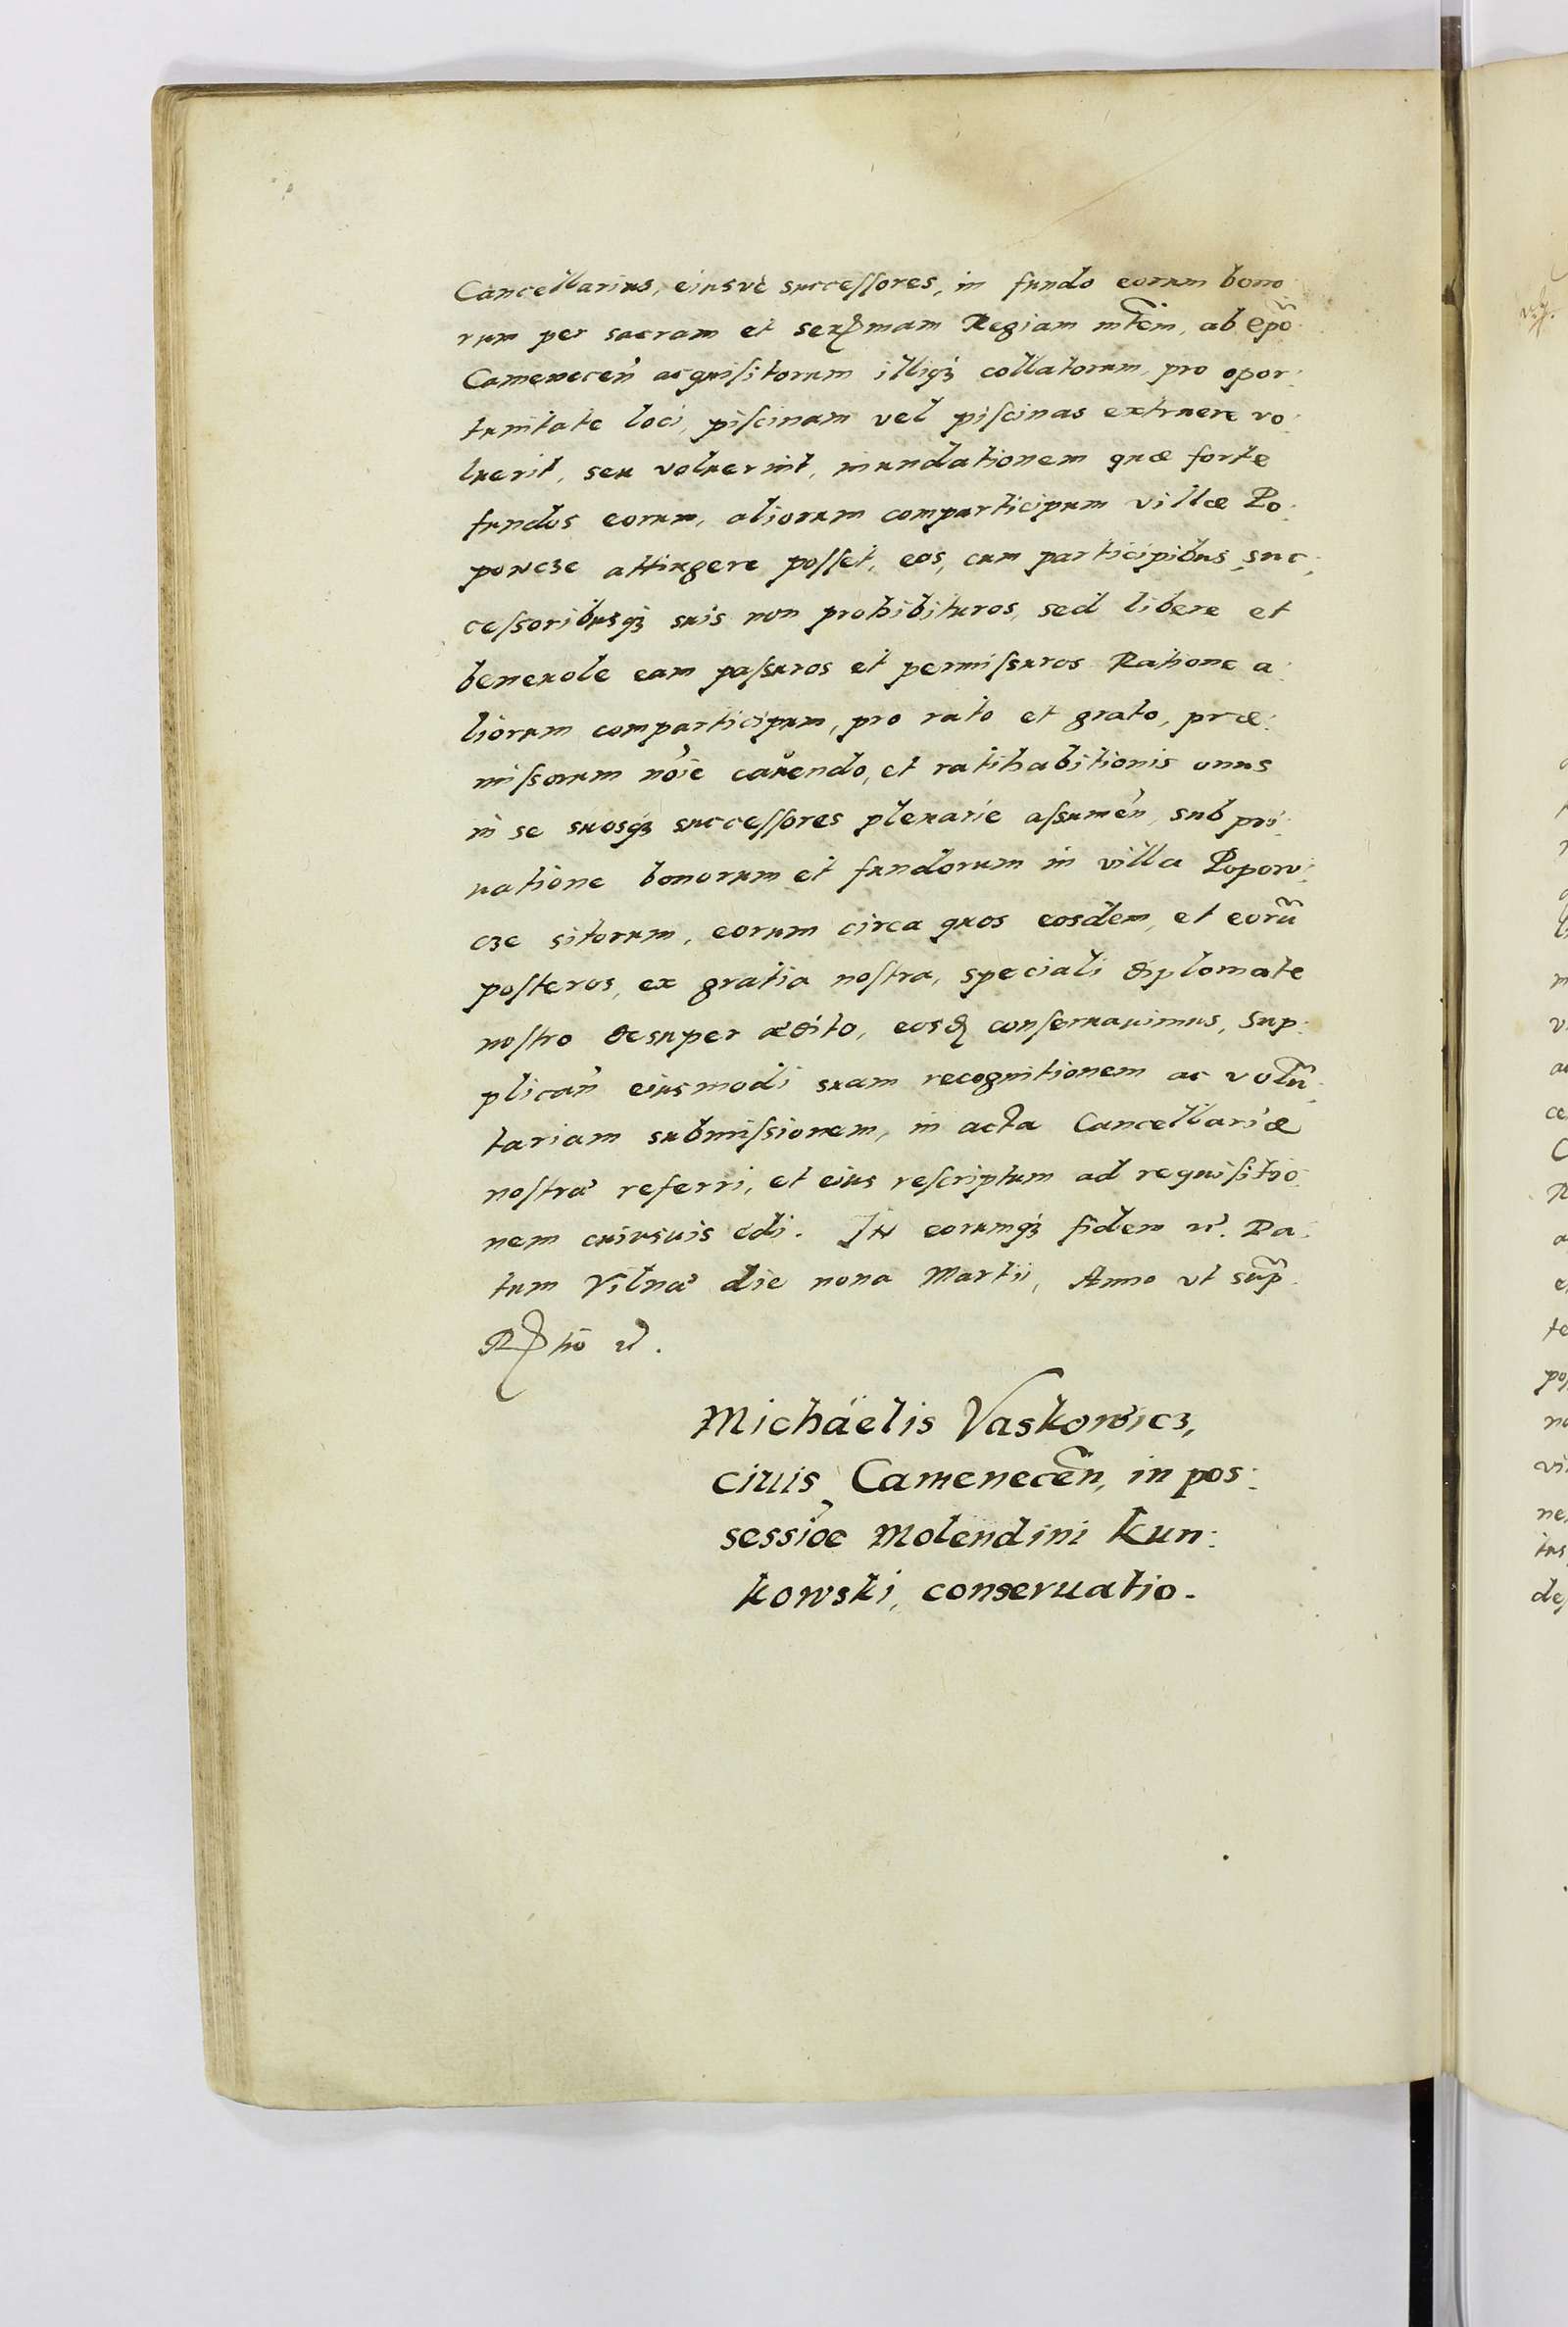 Cancellarius, eiusvè succeſſores, in fundo eorum bono
rum per sacram et serꝫmam Regiam mtem̃, ab ep̃o
Camenecen̄ acquiſitorum illiqꝫ collatorum, pro opor:
tunitate loci, piſcinam vel piſcinas extruere vo:
luerit, seu voluerint, inundationem quæ forte
fundos eorum, aliorum comparticipum villæ Po:
powcze attingere poſſet, eos, cum participibus, suc:
ceſsoribusqꝫ suis non prohibituros, sed libere et
beneuole eam paſsuros et permiſsuros Ratione a:
liorum comparticipum, pro rato et grato, præ:
miſsorum nōie cauendo, et ratihabitionis onus
in se suosqꝫ succeſſores plenarie aſsumen̄, sub pri:
uatione bonorum et fundorum in villa Popow:
cze sitorum, eorum circa quos eosdem, et eorũ
poſteros, ex gratia noſtra, speciali diplomate
noſtro desuper ædito, eosd conſeruauimus, Sup:
plican̄ eiusmodi suam recognitionem ac volũ:
tariam submiſsionem, in acta Cancellariæ
noſtræ referri, et eius reſcriptum ad requiſitio:
nem cuiusuis edi. In eorumqꝫ fidem etc. Da:
tum Vilnæ die nona Martii, Anno vt sup̃.
Rtio etc.
Michaëlis Vaskowicz,
ciuis Camenecen̄, in pos:
sessiōe Molendini Kun:
kowski, conseruatio.